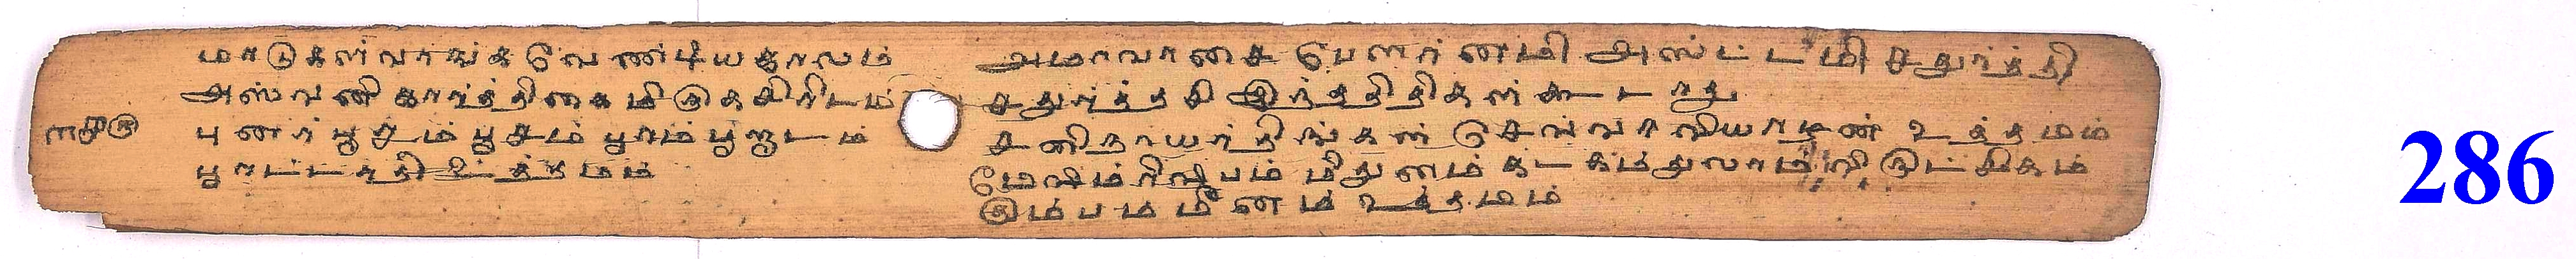 மாடுகள்வாங்கவேண்டியகாலம்
அஸ்வனி கார்த்திகை மிருகசிரிடம்
புனர்பூசம் பூசம் பூரம் பூராடம்
பூரட்டாதி உத்தமம்
அமாவாசை பௌர்னமி அஸ்ட்டமி சதுர்த்தி
சதுர்த்தசி இத்திதிகள் கூடாது
சனிநாயர்திங்கள் செவ்வாவியாழன் உத்தமம்
மேஷம்ரிஷபம் மிதுனம் கடகம்துலாம்விருட்சிகம்
கும்பம் மீனம் உத்தமம்
286